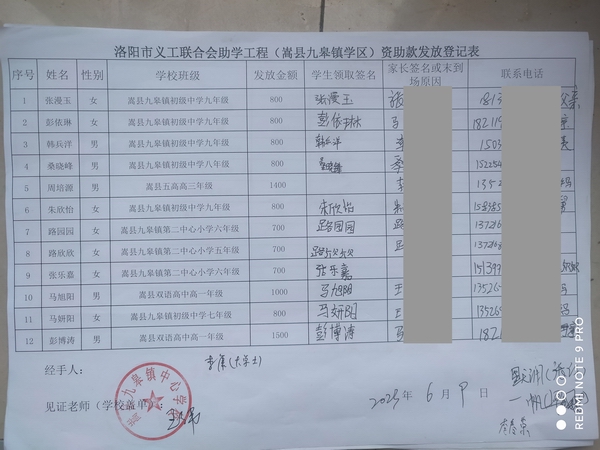 洛阳市义工联合会助学工程（嵩县九皋镇学区）资助款发放登记表
序号 姓名 性别 学校班级 发放金额 学生领取签名 家长签名或未到场原因 联系电话
1 张漫玉 女 嵩县九皋镇初级中学九年级 800 张漫玉
2 彭依琳 女 嵩县九皋镇初级中学九年级 800 彭依琳 18211
3 韩兵洋 男 嵩县九皋镇初级中学九年级 800 韩兵洋 1503
4 桑晓峰 男 嵩县九皋镇初级中学八年级 800 桑晓峰 152254
5 周培源 男 嵩县五高高三年级 1400 1352
6 朱欣怡 女 嵩县九皋镇初级中学九年级 800 朱欣怡
7 路园园 女 嵩县九皋镇第二中心小学六年级 700 路园园 137216
8 路欣欣 女 嵩县九皋镇第二中心小学五年级 700 路欣欣 137216
9 张乐嘉 女 嵩县九皋镇第二中心小学六年级 700 张乐嘉 151397
10 马旭阳 男 嵩县双语高中高一年级 1000 马旭阳 王 135265
11 马妍阳 女 嵩县九皋镇初级中学七年级 800 马妍阳 王 135265
12 彭博涛 男 嵩县双语高中高一年级 1500 彭博涛 1821
经手人：
见证老师（学校盖单）：
九皋镇中心学
年 6 月 9 日
REDMI NOTE 9 PRO